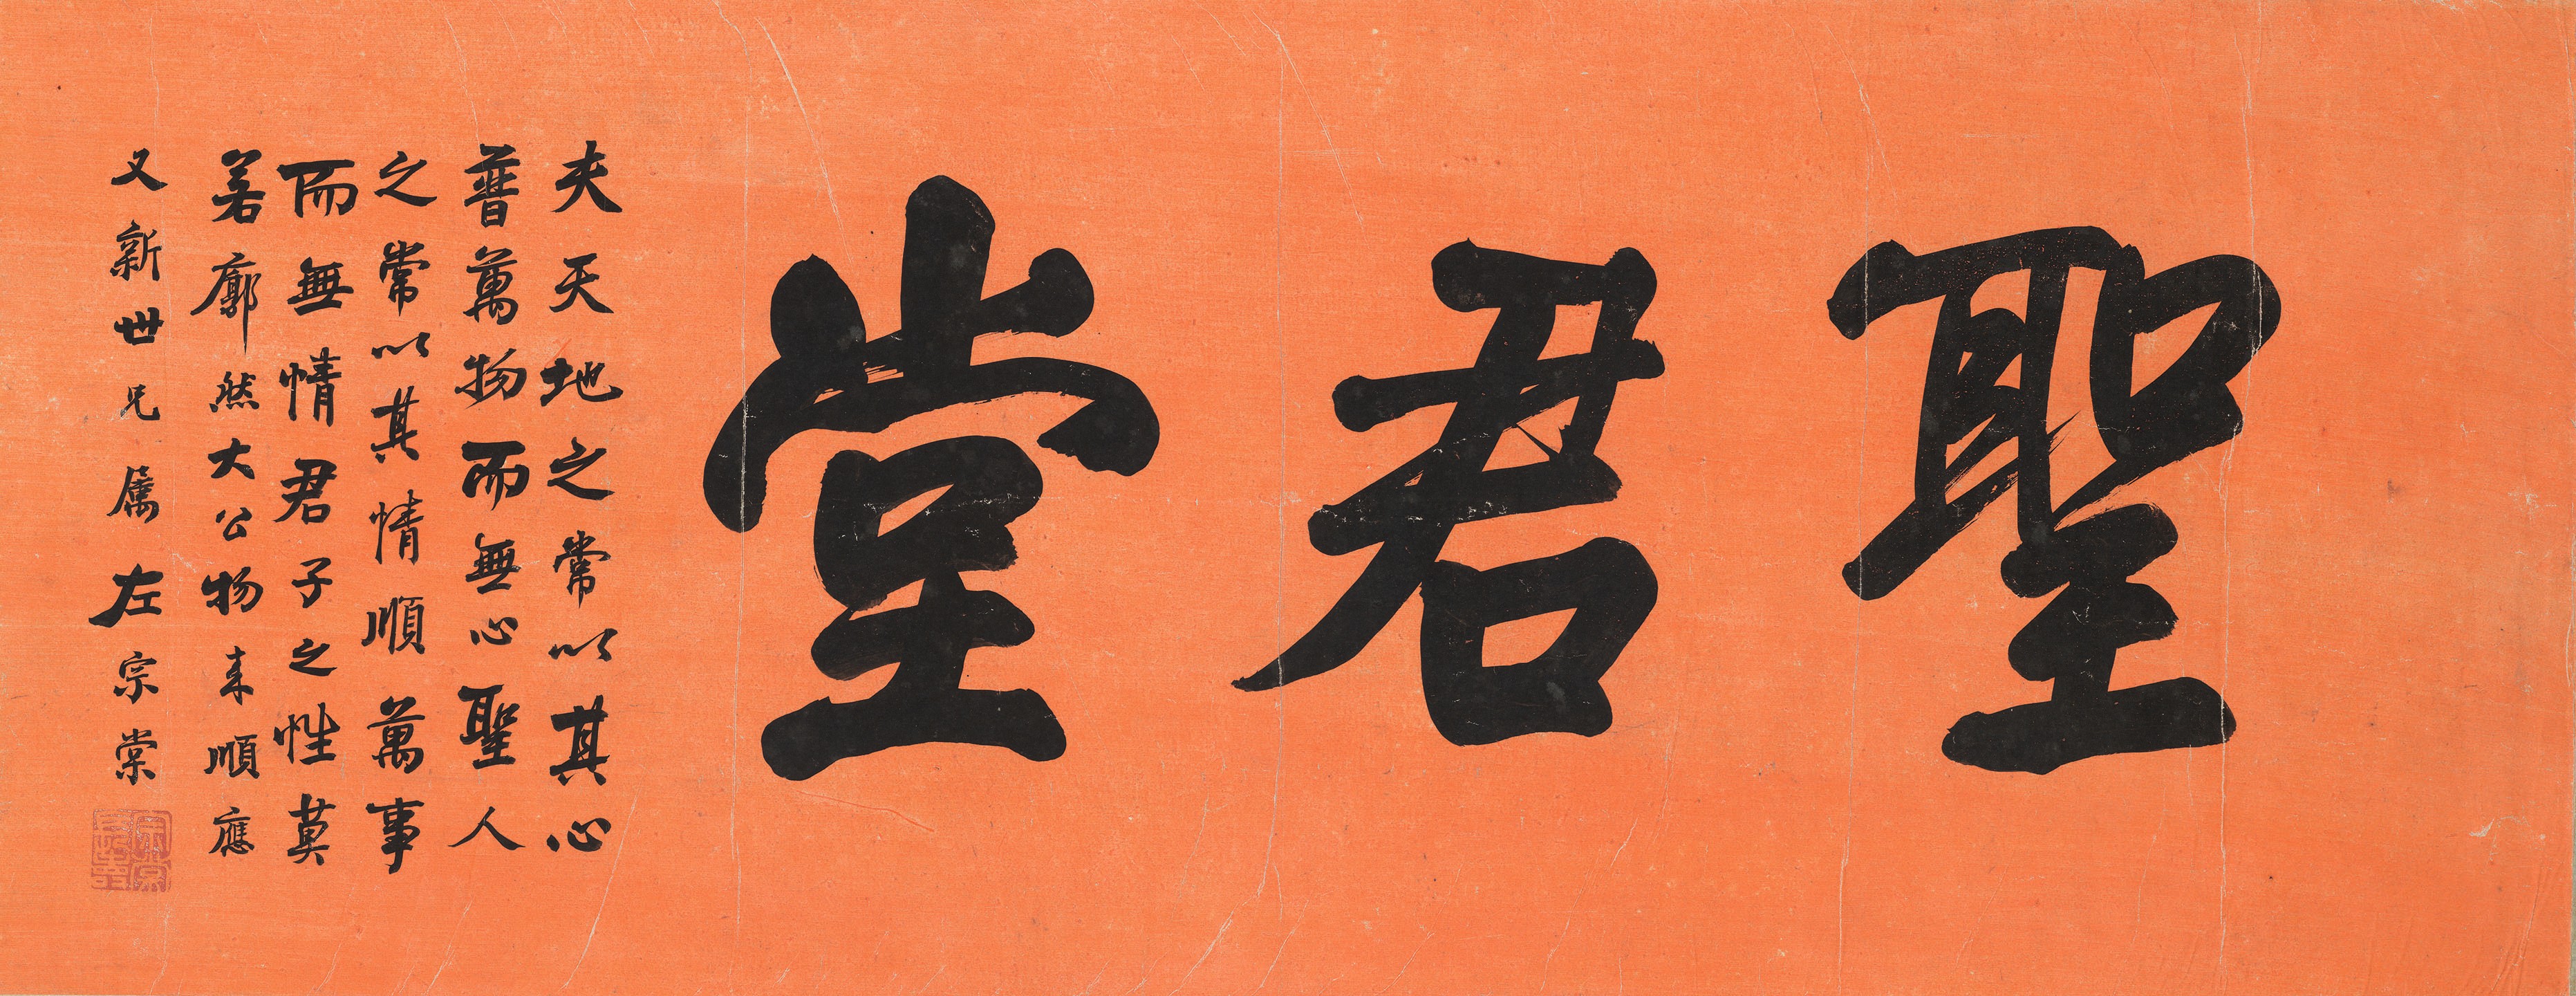 聖君堂
夫天地之常以其心
普萬物而無心聖人
之常以其情順萬事
而無情君子之性莫
若廓然大公物來順應
又新世兄属左宗棠